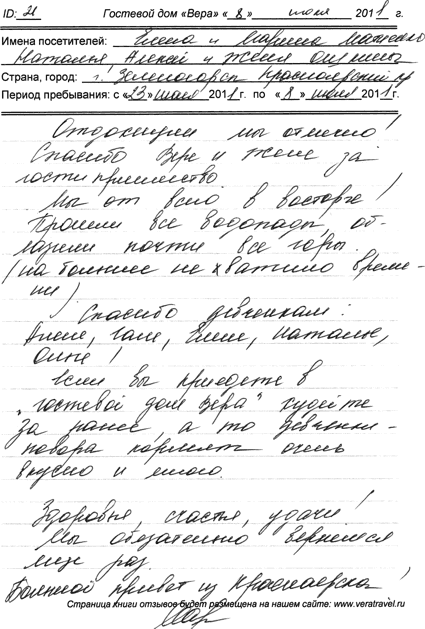 ID: 21 Гостевой дом «Вера» « 8 » июля 2011 г.
Имена посетителей: Елена и Марина
Наталья, Алексей и Женя
Страна, город: г. Зеленогорск Красноярский кр
Период пребывания: с «23» июля 2011 г. по « 8 » июля 2011 г.
Отдохнули мы отлично!
Спасибо Вере и Жене за
гостиприимство.
Мы от всего в восторге!
Прошли все водопады, об-
лазили почти все горы.
(на большее не хватило време-
ни)
Спасибо девчонкам:
Алене, Гале, Елене, Наталье,
Ольге!
Если вы приедете в
"гостевой дом Вера" худейте
за ранее, а то девчонки-
повара кормят очень
вкусно и много.
Здоровья, счастья, удачи!
Мы обязательно вернемся
еще раз.
Большой привет из Красноярска!
Страница книги отзывов будет размещена на нашем сайте: www.veratravel.ru